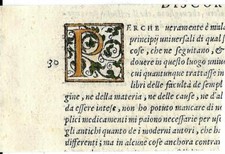 DISCOR
PERCHE veramente è mul
principij uniuersali di qual s
cose, che ne seguitano, &
30 douere in questo luogo uniue
cui quantunque trattasse in
libri delle facultà de sempl
gine, ne della materia, ne delle cause, ne d'al
da essere intese, non ho potuto mancare di ne
plici medicamenti mi paiono necessarie per us
gli antichi quanto de i moderni autori, che ba
differenti; ma in alcune anchora così oscuri,